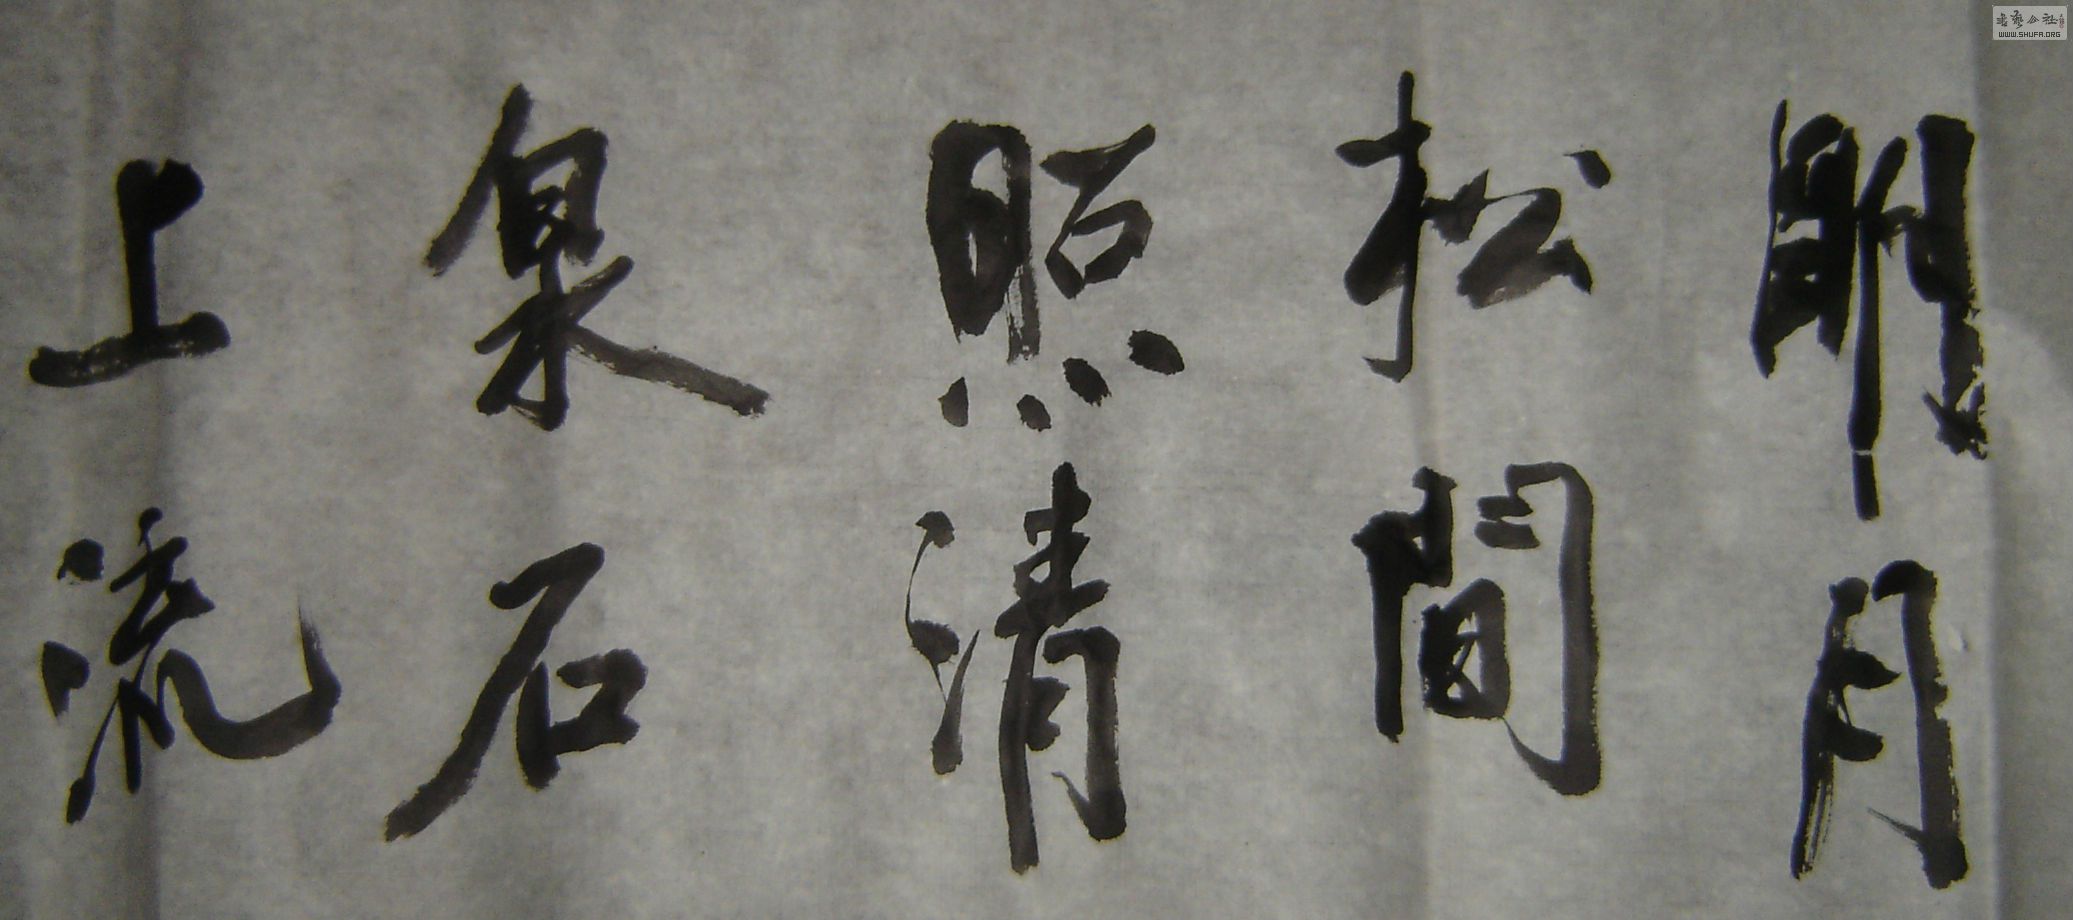 明月
松間
照清
泉石
上流
書藝公社
WWW.SHUFA.ORG